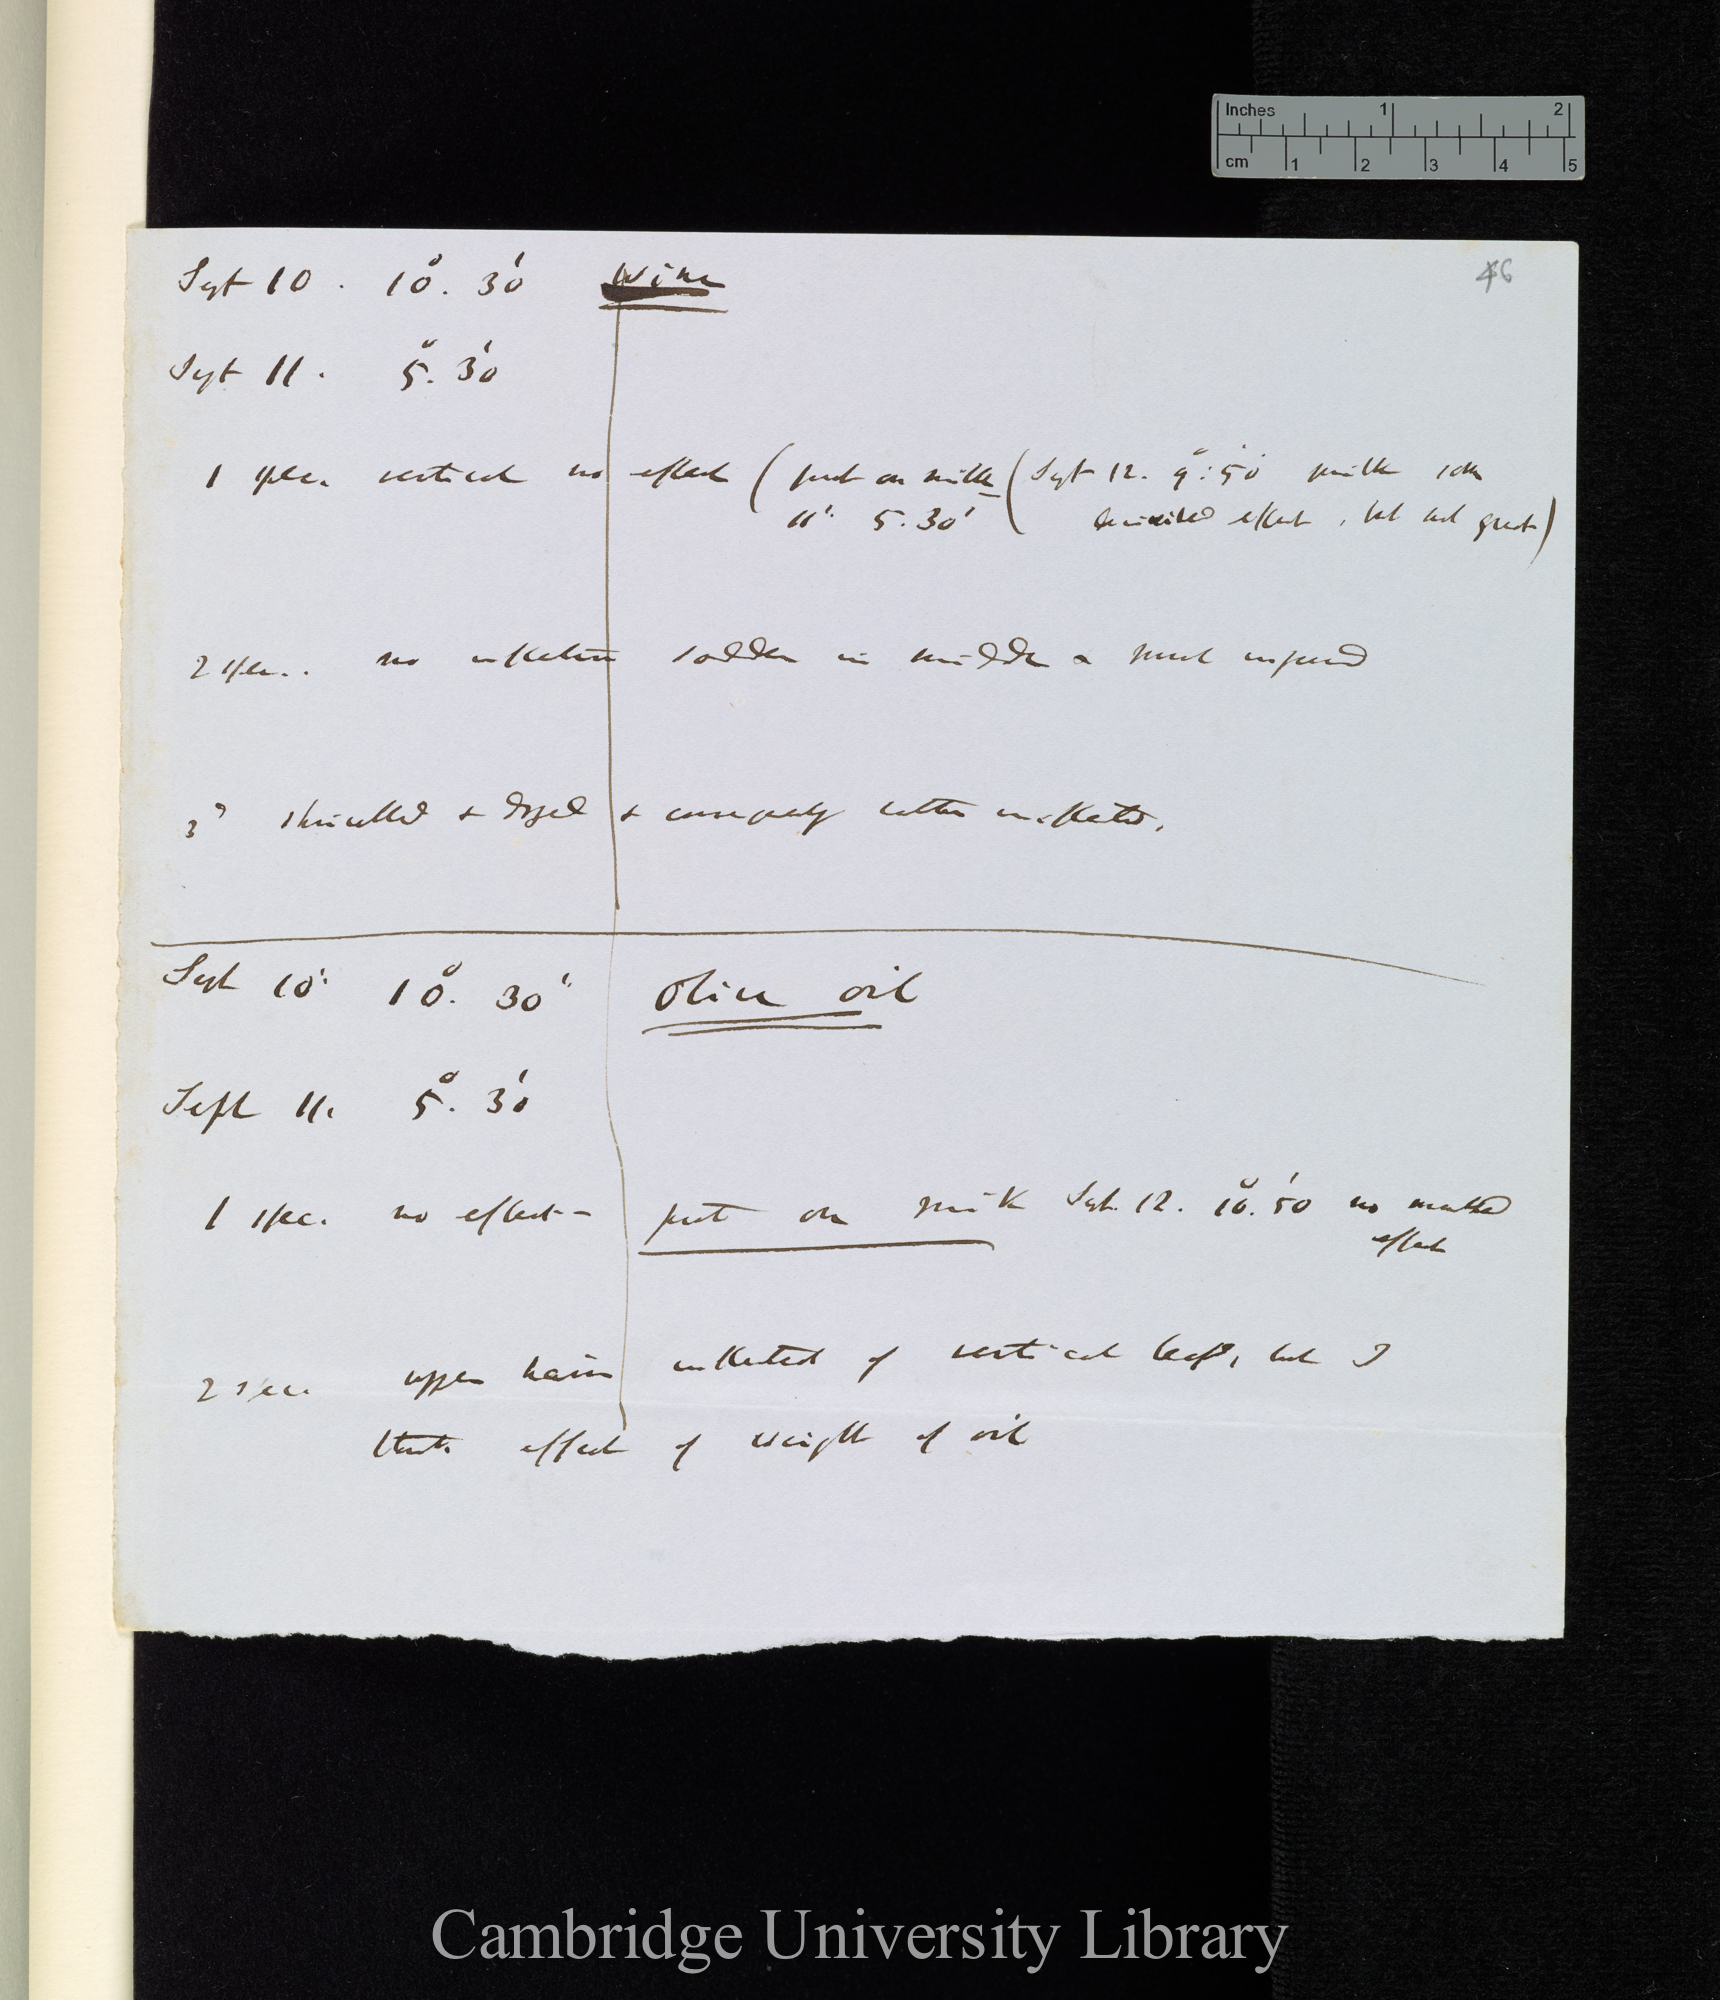 Inches 1 2
cm 1 2 3 4 5
46
Sept 10. 10° 30' Wine
Sept 11. 5° 30'
1 spec. vertical no effect (put on milk (Sept 12. 9°: 50' milk
11' 5. 30' decided effect, but not great)
2 spec.. no inflection sodden in middle & much injured
3° shrivelled & dryed & consequently rather inflected.
Sept 10' 10° 30' Olive oil
Sept 11. 5° 30'
1 spec. no effect - put on milk Sept. 12. 10° 50' no marked
effect
2 spec. upper hairs inflected of vertical leaf, but I
think effect of weight of oil
Cambridge University Library